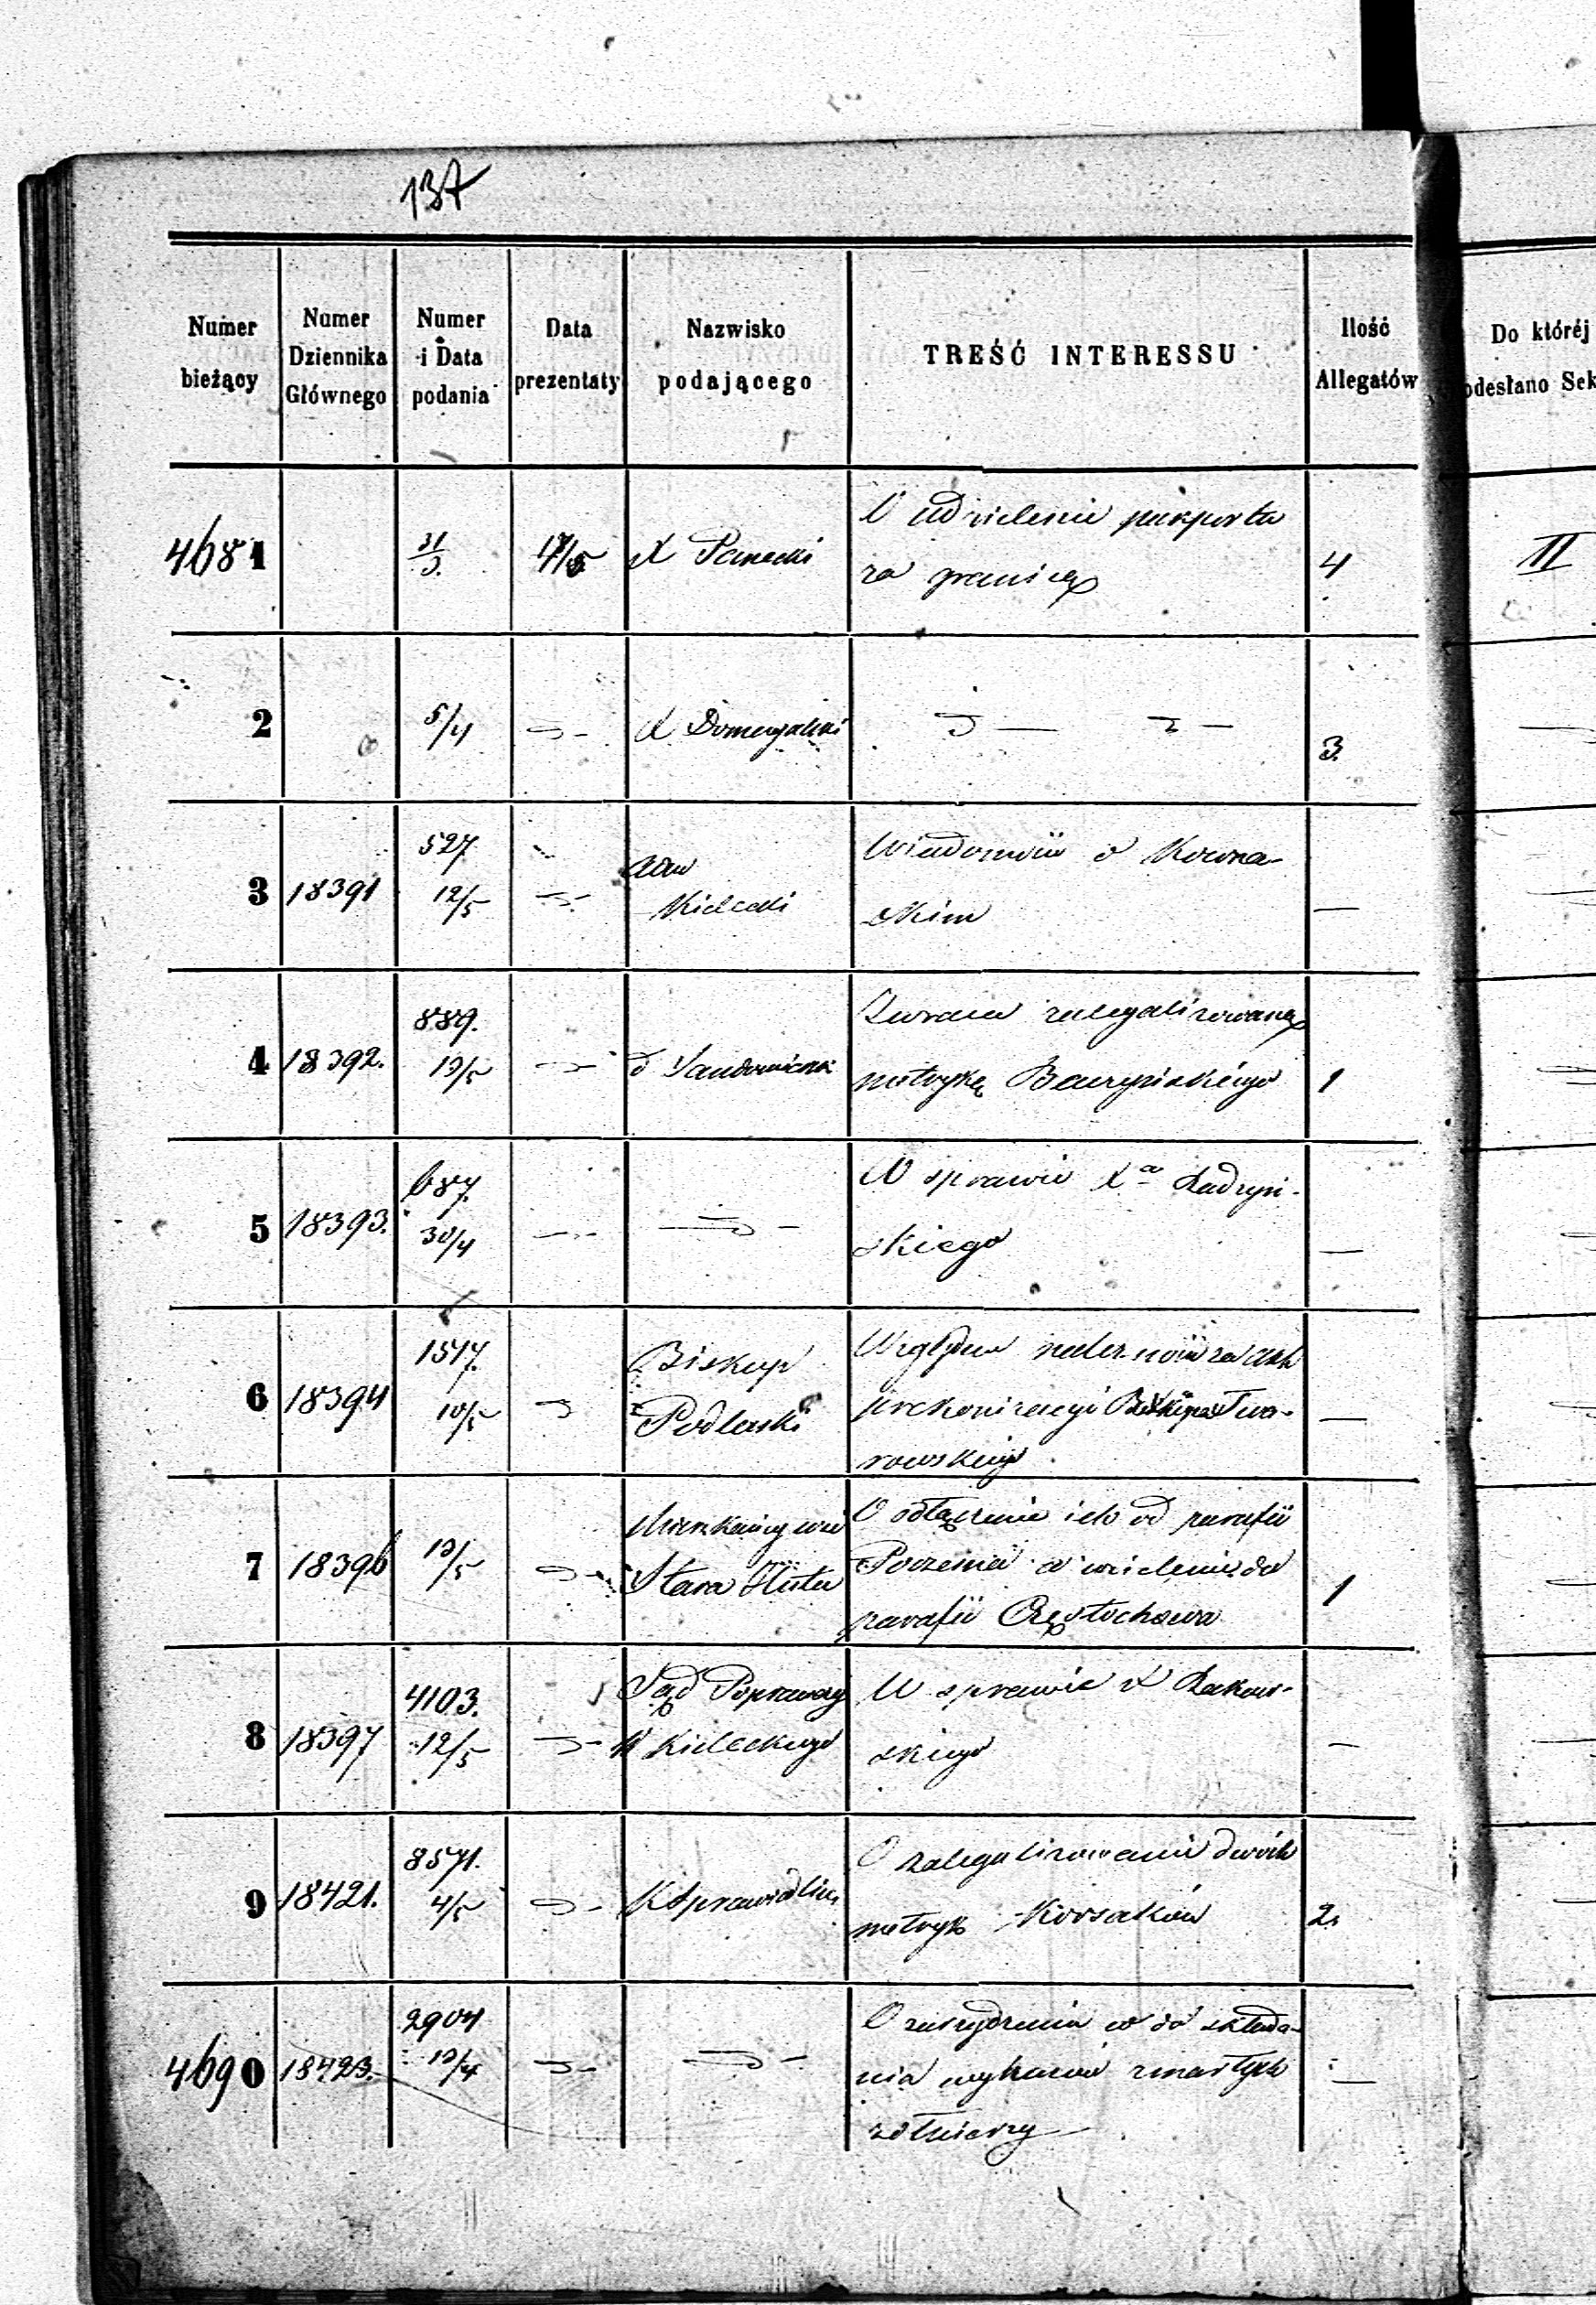 137
Numer bieżący
Numer Dziennika Głównego
Numer i Data podania
Data prezentaty
Nazwisko podającego
TREŚĆ INTERESSU
Ilość Allegatów
Do któréj odesłano Sek
4681
31/3.
14/5
X Panecki
O udzielenie paszportu
za granicę
4
II
2
5/4
X
3.
3
18391
527
12/5
Adm
Kielecki
Wiadomość o Kowna-
skim
—
4
18392.
889.
13/5
d Sandomierski
Zwraca zalegalizowaną
metrykę
1
5
18393.
687.
30/4
W sprawie Xa Radzyń-
skiego
—
6
18394
1517.
10/5
Biskup
Podlaski
Względem
prekonizacyi Biskupa Twa-
rowskiego
—
7
18396
13/5
Mieszkańcy wsi
Stara Huta
O odłączenie ich od parafii
Poczesna a wcielenie do
parafii Częstochowa
1
8
18397
4103.
12/5
Sąd Poprawczy
W Kieleckiego
W sprawie X Rakow-
skiego
—
9
18421.
8571.
4/5
K Sprawiedliw.
O zalegalizowanie dwóch
metryk Korsaków
2.
4690
18423.
2904
13/4
O zarządzenie co do składa-
nia wykazów zmarłych
żołnierzy
—